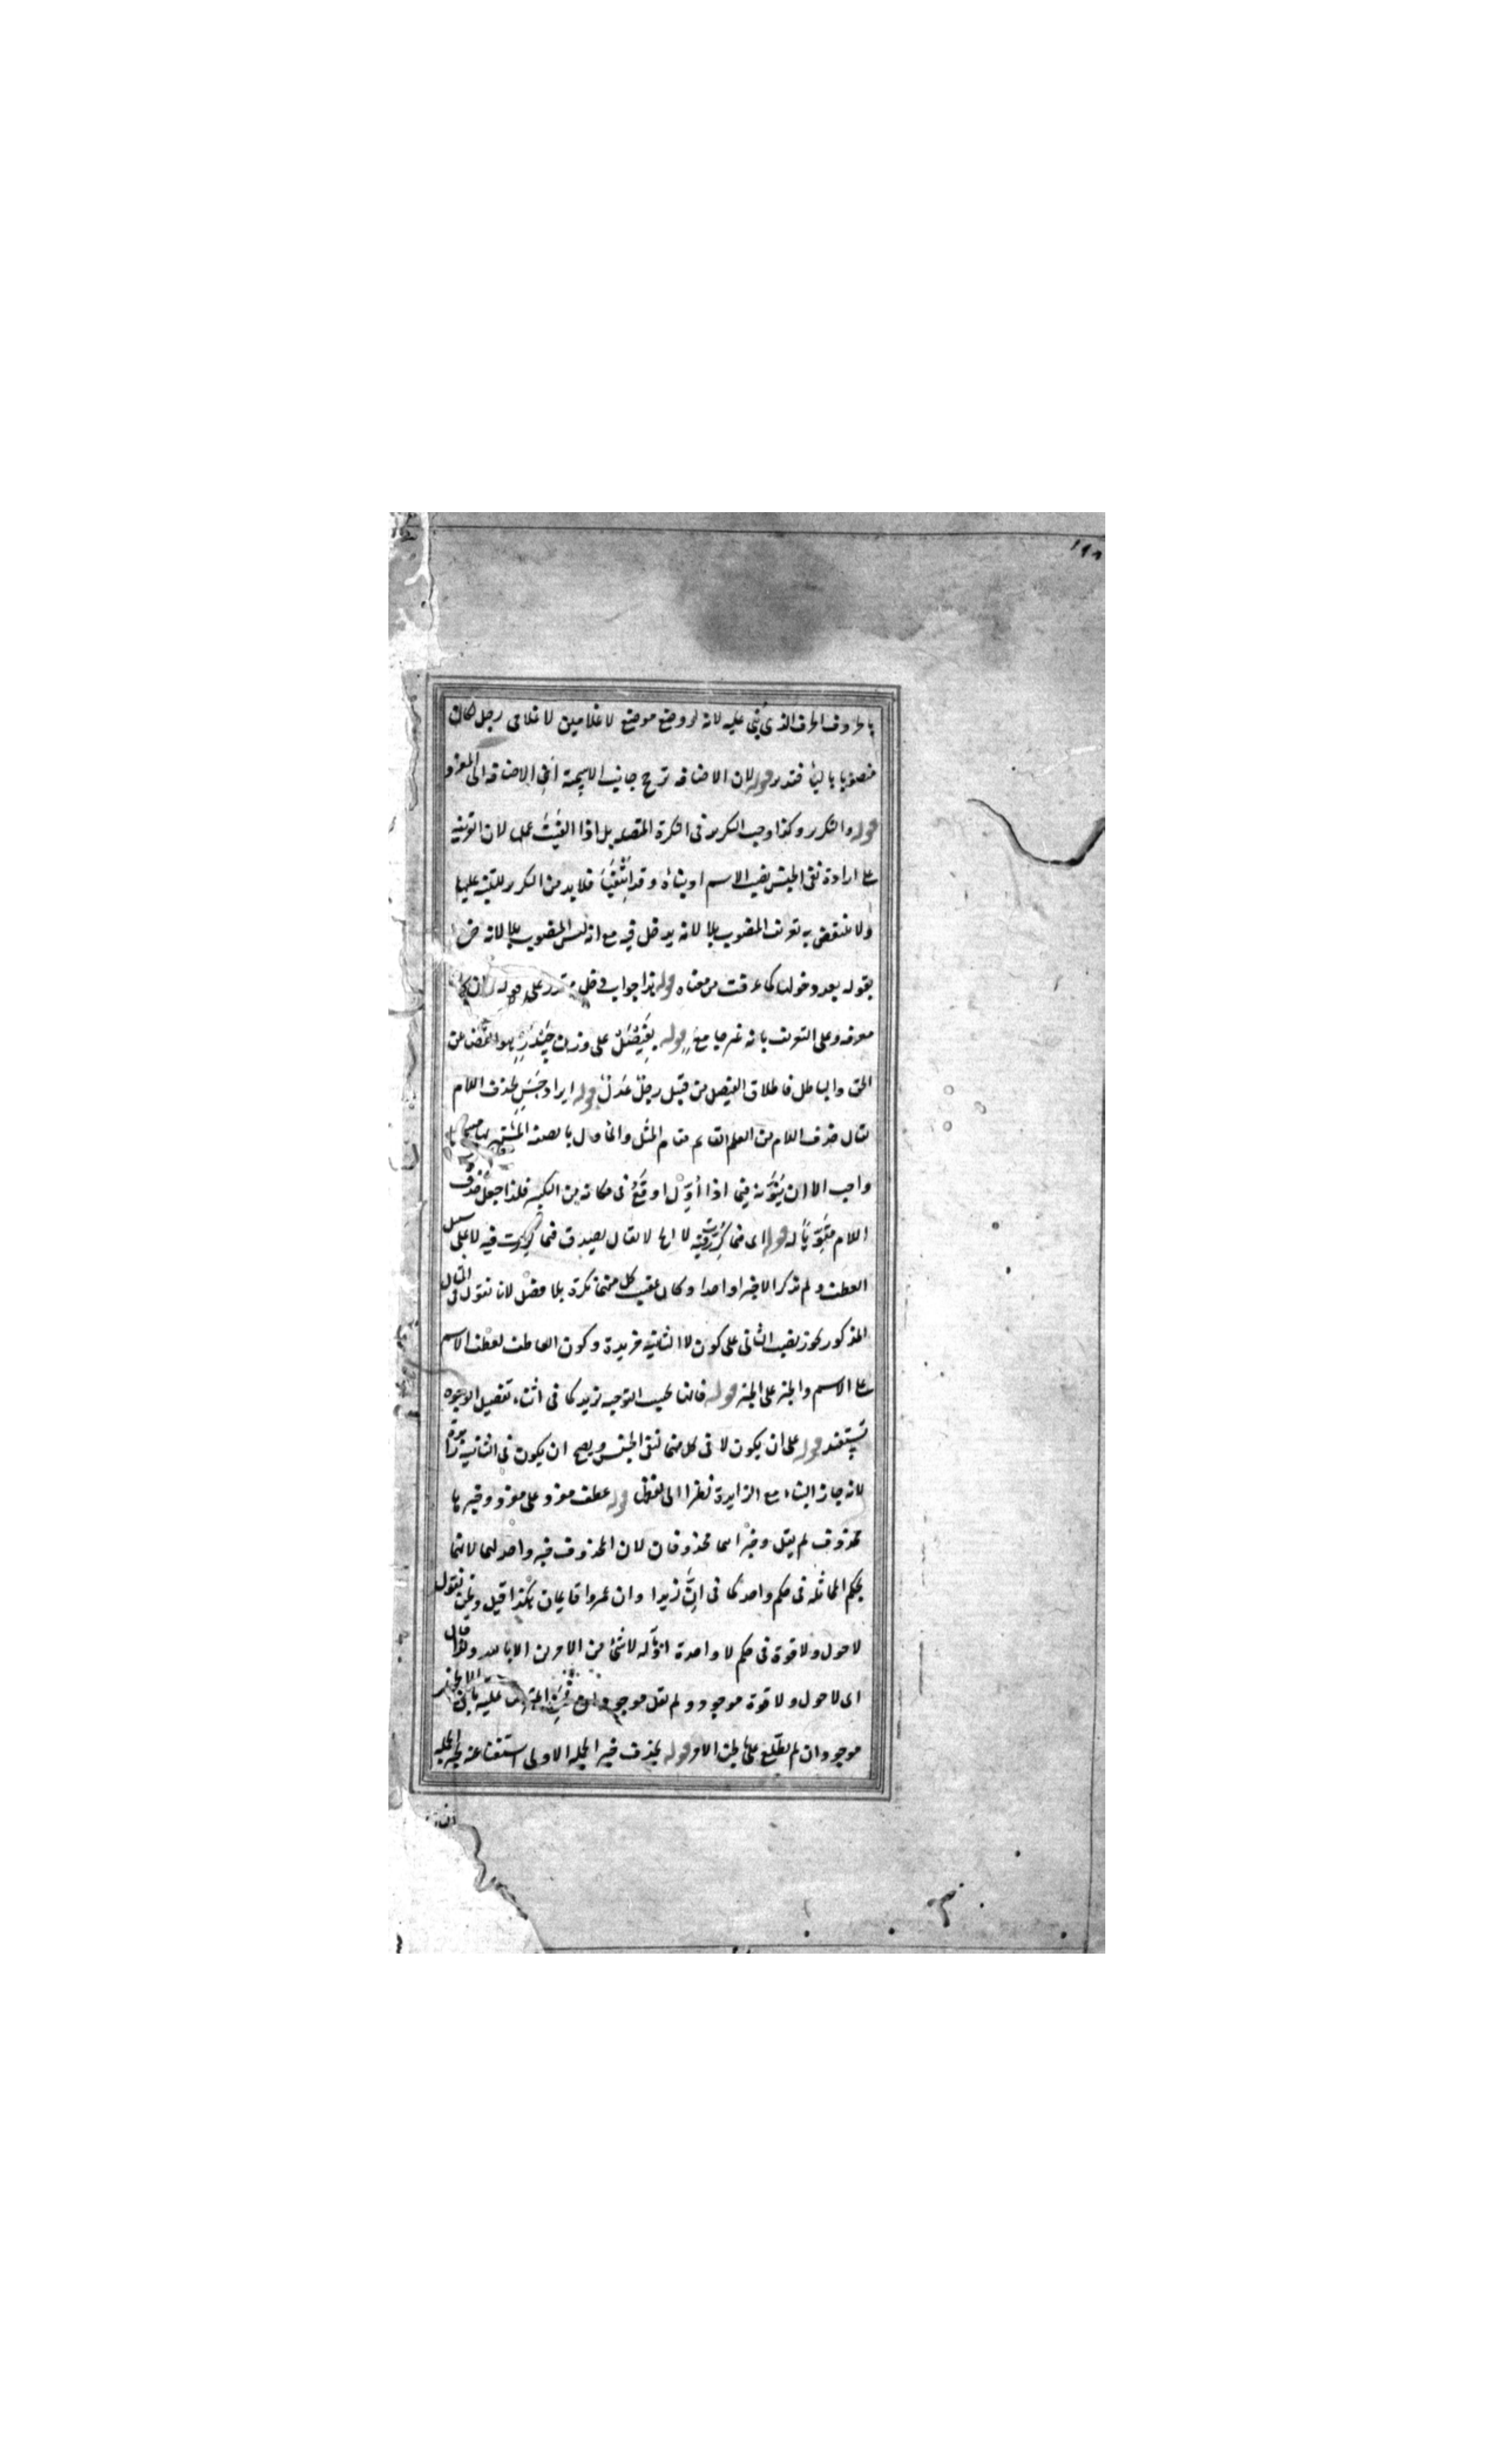 ١٩٨
بالحروف الحرف الذى بنى عليه لانه لو وضع موضع لا غلامين لا غلامى رجل لكان
منصوبا بالياء فتدبر قوله لان الاضافة ترجح جانب الاسمية اى الاضافة الى المفرد
قوله والتكرير وكذا وجب التكرير فى النكرة المتصلة بل اذا الغيت عملها لان القرينة
على ارادة نفى الجنس نصب الاسم او بناؤه وقد انتفيا فلابد من التكرير للتنبيه عليها
ولا ينتقض به تعريف المنصوب بلا لانه يدخل فيه مع انه ليس المنصوب بلا لانه خرج
بقوله بعد دخولها كما عرفت من معناه قوله هذا جواب دخل مقدر على قوله وان كان
معرفة وعلى التعريف بانه غير جامع قوله بفيصل على وزن حيدر هو الفصل بين
الحق والباطل فاطلاق الفيصل من قبيل رجل عدل قوله ايراد حسن بحذف اللام
يقال حذف اللام من العلم القائم مقام المثل والمأول بالصفة المشتهر بها صاحبها
واجب الا ان يتوهم فيما اذا أول اوقع فى مكانه من النكير فلذا جعل حذف
اللام مقويا له قوله اى فيما كررت فيه لا الخ لا يقال يصدق فيما كررت فيه لا على سبيل
العطف ولم تذكر الاخبرا واحدا وكان عقيب كل منهما نكرة بلا فصل لانا نقول فى المثال
المذكور يجوز نصب الثانى على كون لا الثانية مزيدة وكون العاطف لعطف الاسم
على الاسم والخبر على الخبر قوله فانها بحسب التوجيه تزيد كما فى اثناء تفصيل الوجوه
تستفيد قوله على ان يكون لا فى كل منهما لنفى الجنس ويصح ان يكون فى الثانية زائدة
لانه جاز البناء مع الزايدة نظرا الى لفظ قوله عطف مفرد على مفرد وخبرها
محذوف لم يقل وخبراهما محذوفان لان المحذوف خبر واحد لهما لانهما
بحكم المماثلة فى حكم واحد كما فى ان زيدا وان عمروا قايمان هكذا قيل ونحن نقول
لا حول ولا قوة فى حكم لا واحدة اذ مآله لا شئ من الامرين الا بالله ولذا قال
اى لا حول ولا قوة موجود ولم يقل موجودان عليه بان الا بخير
موجودان لم يطلع على هذا الامر قوله بحذف خبر الجملة الاولى استغناء عنه بخبر الجملة